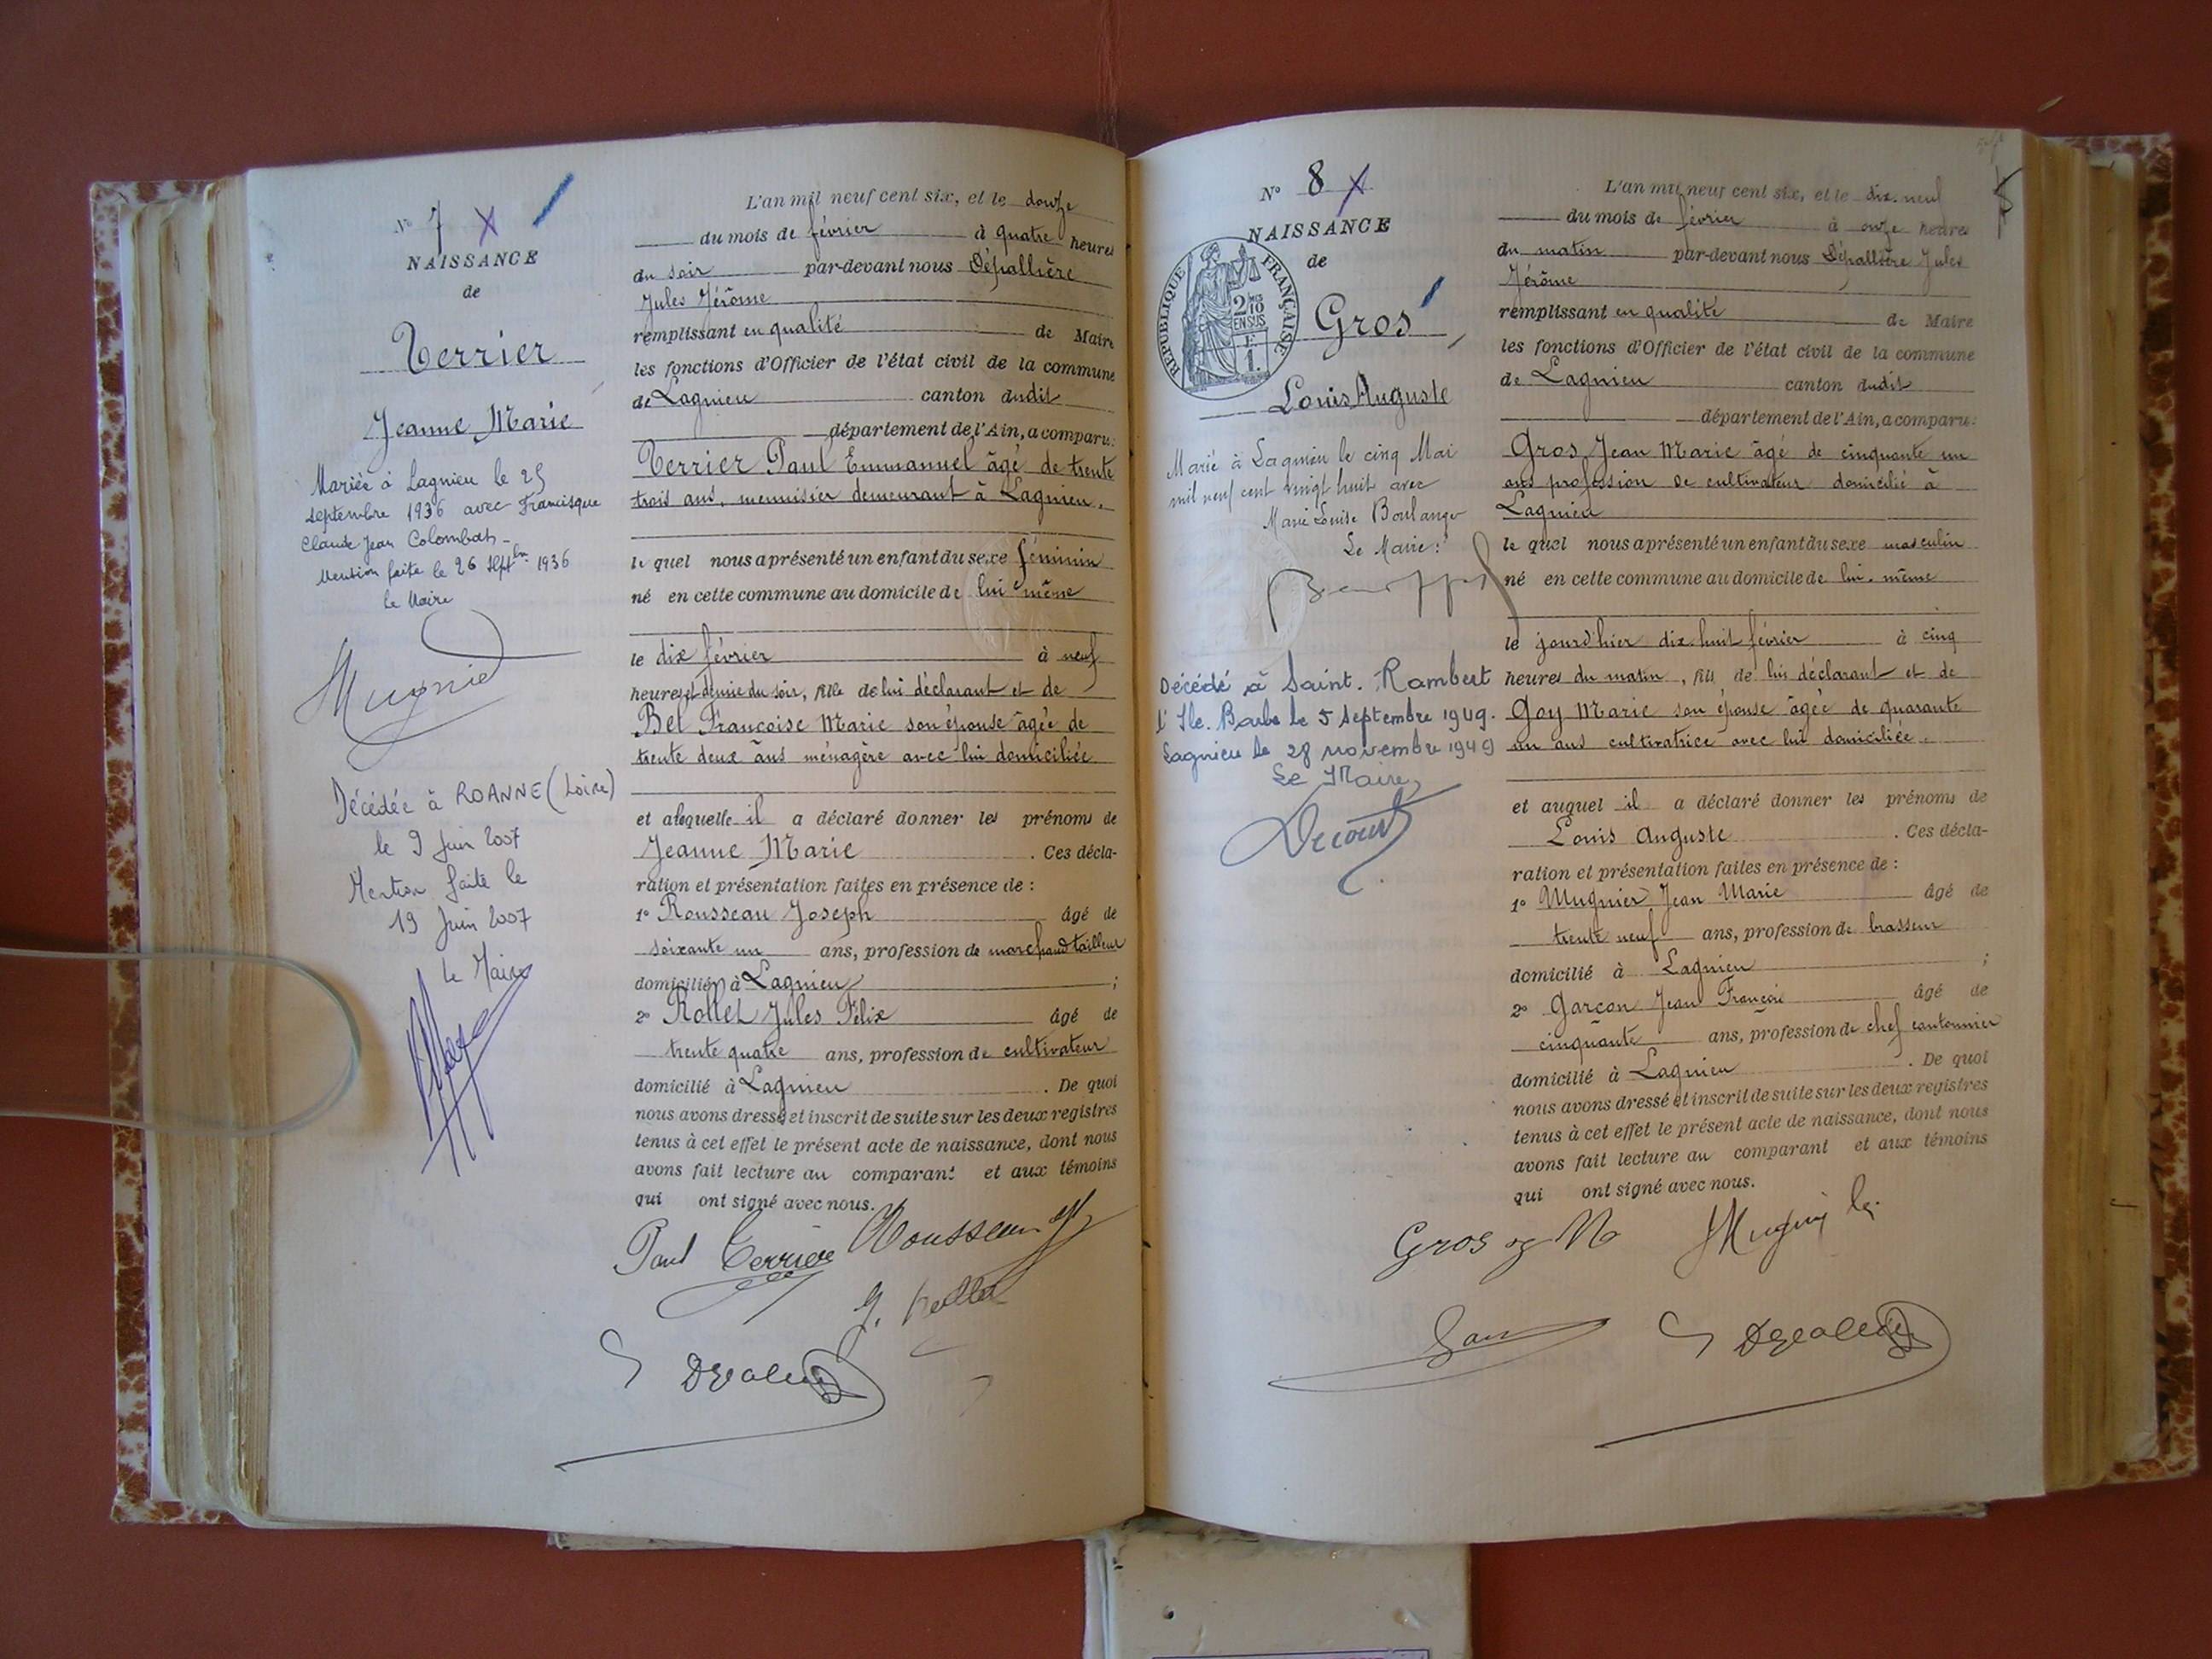 N° 7 X
NAISSANCE
de
Terrier
Jeanne Marie
Mariée à Lagnieu le 25
septembre 1936 avec Francisque
Claude Jean Colombat
Mention faite le 26 Septbre 1936
le Maire
Mugnier
Décédée à ROANNE (Loire)
le 9 Juin 2007
Mention faite le
19 Juin 2007
le Maire
L'an mil neuf cent six, et le douze
du mois de février à quatre heures
du soir par-devant nous Dépallière
Jules Jérôme
remplissant en qualité de Maire
les fonctions d'Officier de l'état civil de la commune
de Lagnieu canton dudit
département de l'Ain, a comparu:
Terrier Paul Emmanuel âgé de trente
trois ans, menuisier demeurant à Lagnieu,
le quel nous a présenté un enfant du sexe féminin
né en cette commune au domicile de lui même
le dix février à neuf
heures et demie du soir, fille de lui déclarant et de
Bel Françoise Marie son épouse âgée de
trente deux ans ménagère avec lui domiciliée
et a laquelle il a déclaré donner les prénoms de
Jeanne Marie . Ces décla-
ration et présentation faites en présence de :
1° Rousseau Joseph âgé de
soixante un ans, profession de marchand tailleur
domicilié à Lagnieu ;
2° Rollet Jules Félix âgé de
trente quatre ans, profession de cultivateur
domicilié à Lagnieu . De quoi
nous avons dressé et inscrit de suite sur les deux registres
tenus à cet effet le présent acte de naissance, dont nous
avons fait lecture au comparant et aux témoins
qui ont signé avec nous.
Paul Terrier Rousseau
J. Rollet
N° 8 X
NAISSANCE
de
REPUBLIQUE FRANÇAISE
2/10
EN SUS
F.
1.
Gros
Louis Auguste
Marié à Lagnieu le cinq Mai
mil neuf cent vingt huit avec
Marie Louise Boulanger
Le Maire :
Décédé à Saint. Rambert
l'Ile. Barbe le 5 septembre 1949.
Lagnieu le 28 novembre 1949
Le Maire,
L'an mil neuf cent six, et le dix-neuf
du mois de février à onze heures
du matin par-devant nous Dépallière Jules
Jérôme
remplissant en qualité de Maire
les fonctions d'Officier de l'état civil de la commune
de Lagnieu canton dudit
département de l'Ain, a comparu:
Gros Jean Marie âgé de cinquante un
ans profession de cultivateur domicilié à
Lagnieu
le quel nous a présenté un enfant du sexe masculin
né en cette commune au domicile de lui-même
le jourd'hier dix-huit février à cinq
heures du matin, fils de lui déclarant et de
Goy Marie son épouse âgée de quarante
un ans cultivatrice avec lui domiciliée.
et auquel il a déclaré donner les prénoms de
Louis Auguste . Ces décla-
ration et présentation faites en présence de :
1° Mugnier Jean Marie âgé de
trente neuf ans, profession de brasseur
domicilié à Lagnieu ;
2° Garçon Jean François âgé de
cinquante ans, profession de chef cantonnier
domicilié à Lagnieu . De quoi
nous avons dressé et inscrit de suite sur les deux registres
tenus à cet effet le présent acte de naissance, dont nous
avons fait lecture au comparant et aux témoins
qui ont signé avec nous.
Gros